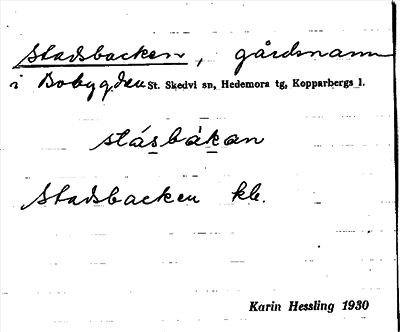 Stadsbacken, gårdsnamn
i Bobygden St. Skedvi sn, Hedemora tg, Kopparbergs l.
stásbàkan
Stadsbacken kb.
Karin Hessling 1930